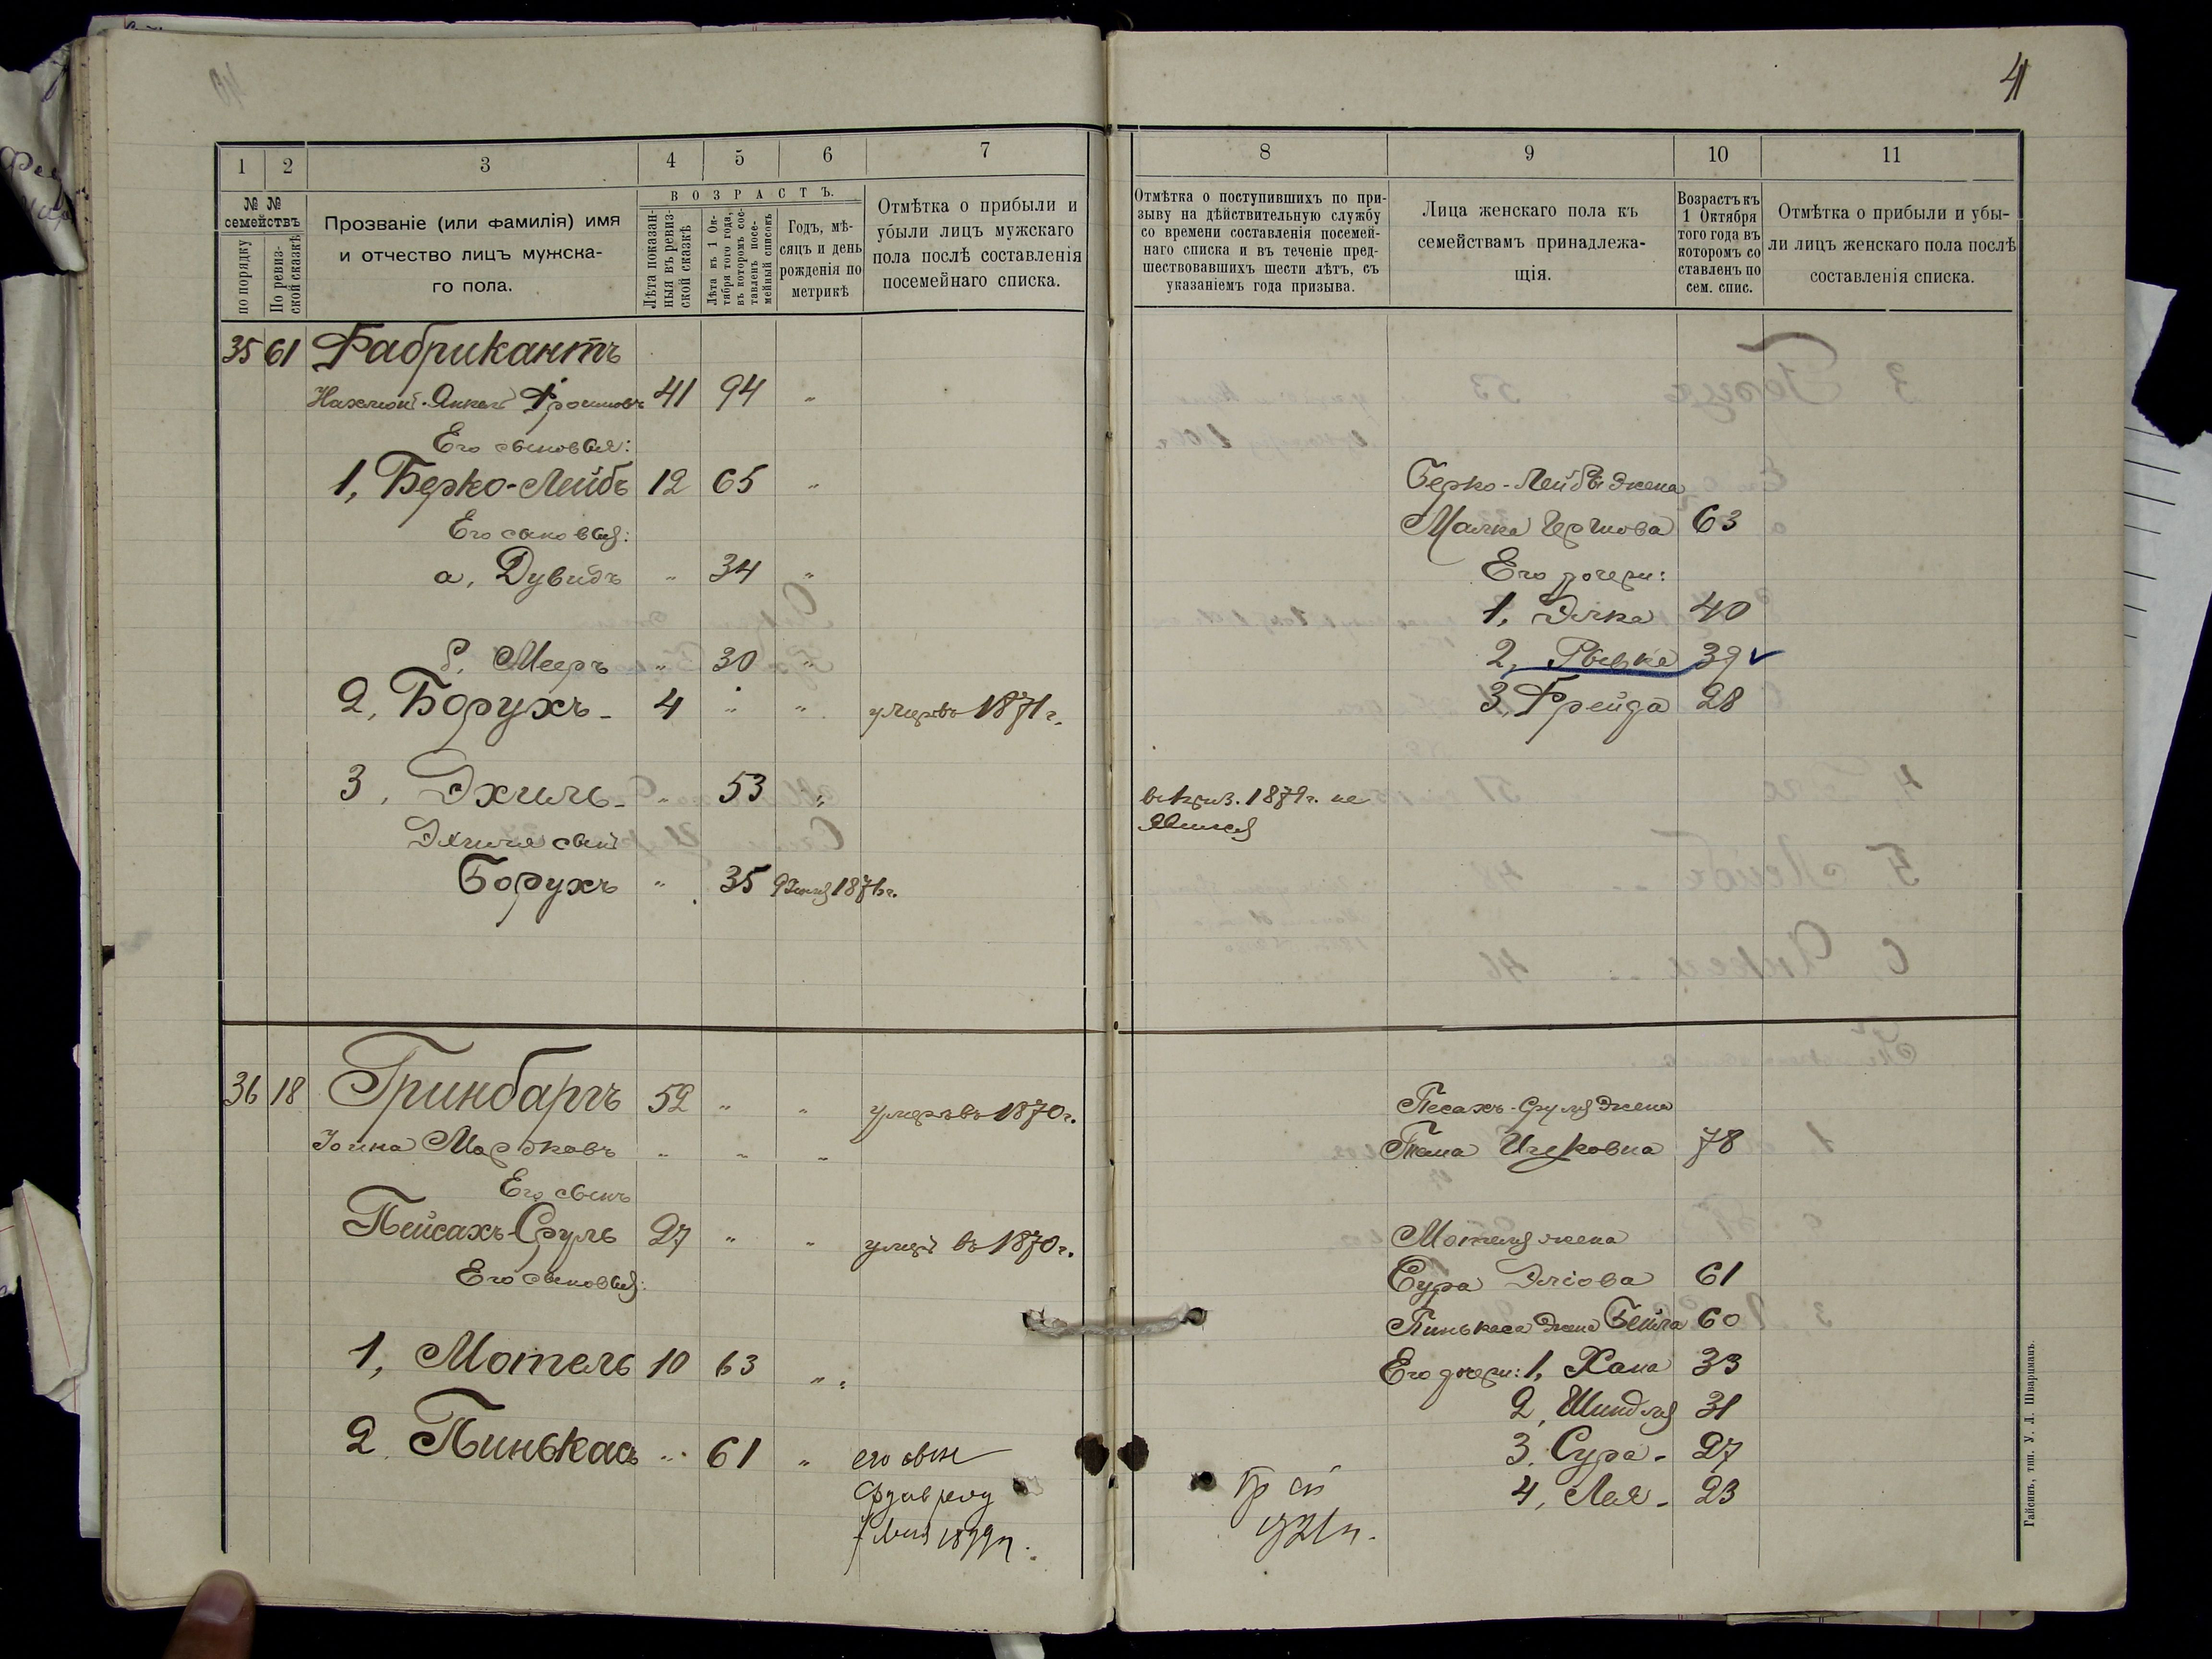 41
1 2 3 4 5 6 7
№ №
семействъ
по порядку
По ревиз-
ской сказкѣ
Прозваніе (или фамилія) имя
и отчество лицъ мужска-
го пола.
ВОЗРАСТЪ.
Лѣта показан-
ныя въ ревиз-
ской сказкѣ
Лѣта къ 1 Ок-
тября того года,
въ которомъ сос-
тавленъ посе-
мейный списокъ
Годъ, мѣ-
сяцъ и день
рожденія по
метрикѣ
Отмѣтка о прибыли и
убыли лицъ мужскаго
пола послѣ составленія
посемейнаго списка.
35 61 Фабрикантъ
41 94 "
Его сыновья:
1, Берко-Лейбъ 12 65 "
Его сыновья:
а, Дувидъ " 34 "
Мееръ " 30 "
2, Борухъ - 4 " " умеръ въ 1871 г.
3, Эхиль - " 53 "
Эхиля сынъ
Борухъ " 35 1876 г.
36 18 Гринбаргъ 52 " " умеръ въ 1870 г.
Іойна " " "
Его сынъ
Пейсахъ-Сруль 27 " " умеръ въ 1870 г.
Его сыновья:
1, Мотель 10 63 "
2. Пинькасъ " 61 " его сынъ
8 9 10 11
Отмѣтка о поступившихъ по при-
зыву на дѣйствительную службу
со времени составленія посемей-
наго списка и въ теченіе пред-
шествовавшихъ шести лѣтъ, съ
указаніемъ года призыва.
Лица женскаго пола къ
семействамъ принадлежа-
щія.
Возрастъ къ
1 Октября
того года въ
которомъ со
ставленъ по
сем. спис.
Отмѣтка о прибыли и убы-
ли лицъ женскаго пола послѣ
составленія списка.
Берко-Лейбы жена
Малка Гершова 63
Его дочери:
1, Элка 40
2, Рывка 39
3, Фрейда 28
не
явился
Песахъ-Сруля жена
Ицковна 78
Мотеля жена
Сура Эліова 61
Пинькаса жена Бейла 60
Его дочери: 1, Хана 33
2, Шиндля 31
3. Сура - 27
4, Лея - 23
Гайсинъ, тип. У. Л. Шварцманъ.